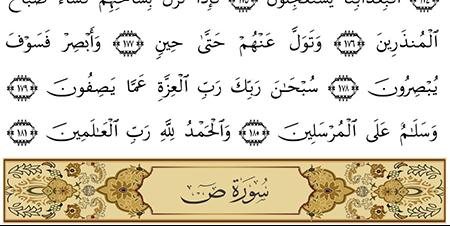 ﴿١٧٤﴾ أَفَبِعَذَابِنَا يَسْتَعْجِلُونَ ﴿١٧٥﴾ فَإِذَا نَزَلَ بِسَاحَتِهِمْ فَسَاءَ صَبَاحُ
ٱلْمُنذَرِينَ ﴿١٧٦﴾ وَتَوَلَّ عَنْهُمْ حَتَّىٰ حِينٍ ﴿١٧٧﴾ وَأَبْصِرْ فَسَوْفَ
يُبْصِرُونَ ﴿١٧٨﴾ سُبْحَـٰنَ رَبِّكَ رَبِّ ٱلْعِزَّةِ عَمَّا يَصِفُونَ ﴿١٧٩﴾
وَسَلَـٰمٌ عَلَى ٱلْمُرْسَلِينَ ﴿١٨٠﴾ وَٱلْحَمْدُ لِلَّهِ رَبِّ ٱلْعَـٰلَمِينَ ﴿١٨١﴾
سُورَةُ صٓ